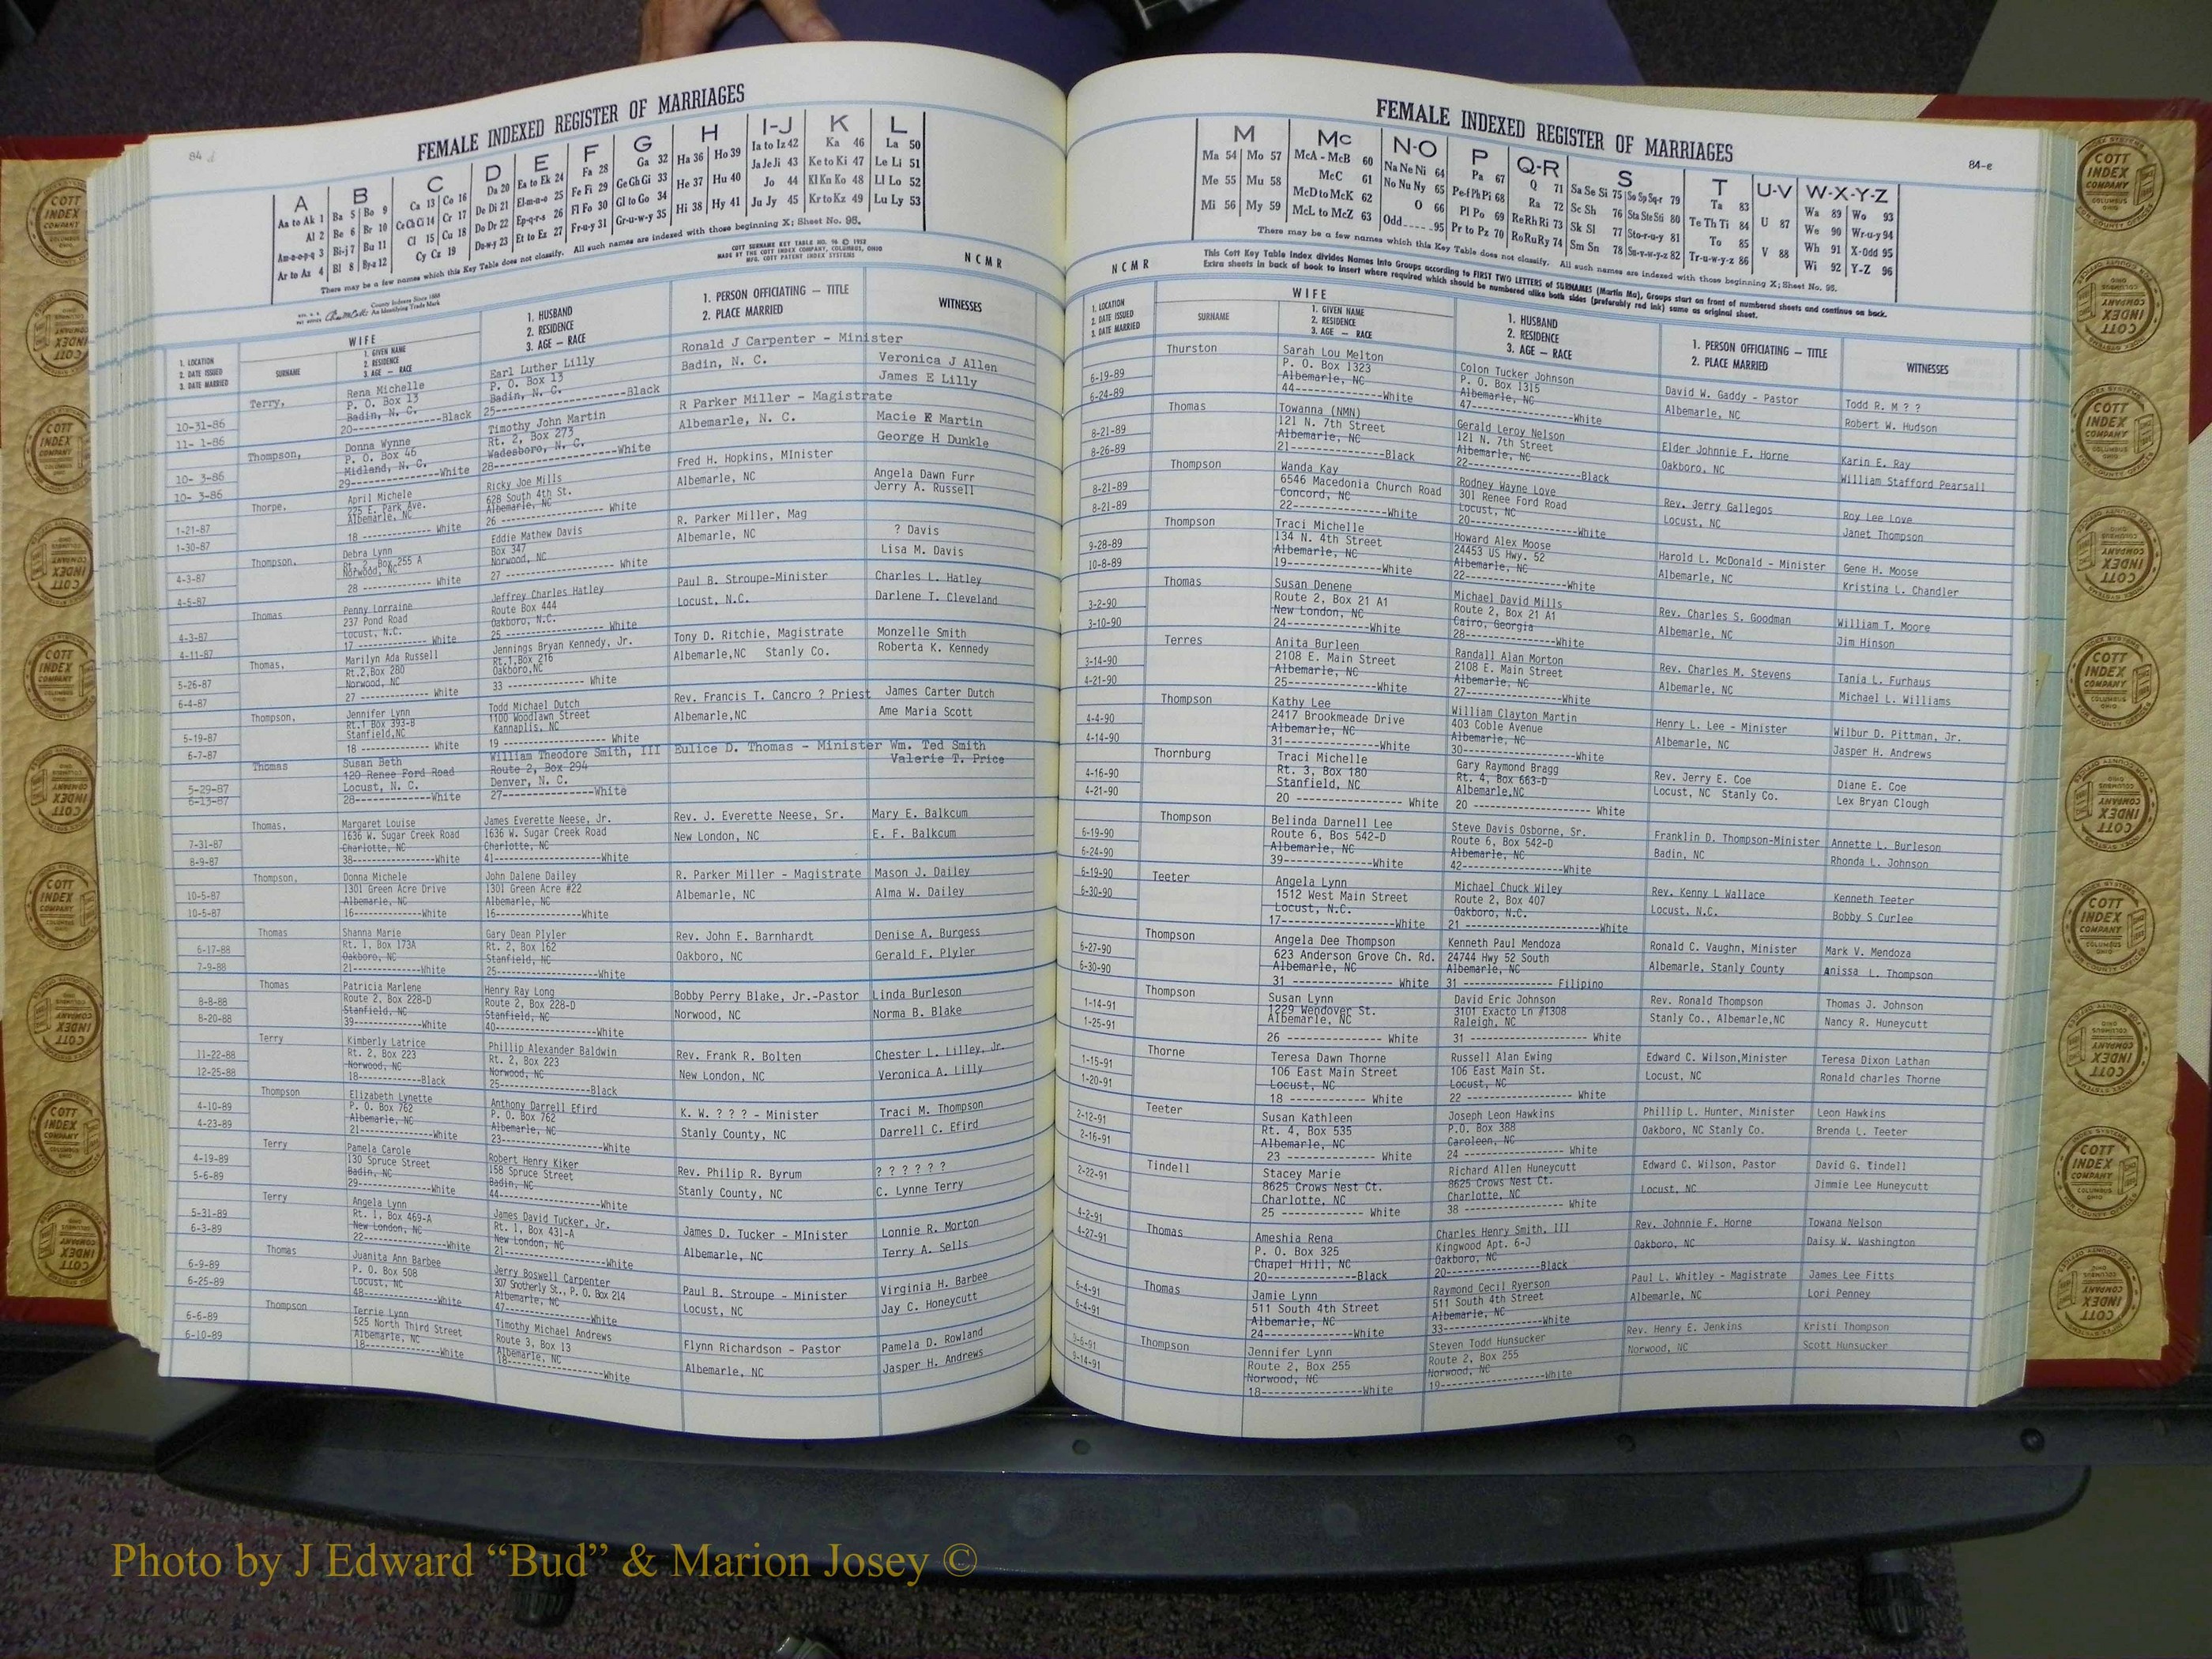 84 d
FEMALE INDEXED REGISTER OF MARRIAGES
A B C D E F G H I-J K L
Aa to Ak 1 Ba 5 Bo 9 Ca 13 Co 16 Da 20 Ea to Ek 24 Fa 28 Ga 32 Ha 36 Ho 39 Ia to Iz 42 Ka 46 La 50
Al 2 Be 6 Br 10 Ce Ch Ci 14 Cr 17 De Di 21 El-m-n-o 25 Fe Fi 29 Ge Gh Gi 33 He 37 Hu 40 Ja Je Ji 43 Ke to Ki 47 Le Li 51
Am-n-o-p-q 3 Bi-j 7 Bu 11 Cl 15 Cu 18 Do Dr 22 Ep-q-r-s 26 Fl Fo 30 Gl to Go 34 Hi 38 Hy 41 Jo 44 Kl Kn Ko 48 Ll Lo 52
Ar to Az 4 Bl 8 By-z 12 Cy Cz 19 Du-w-y 23 Et to Ez 27 Fr-u-y 31 Gr-u-w-y 35 Ju Jy 45 Kr to Kz 49 Lu Ly 53
There may be a few names which this Key Table does not classify. All such names are indexed with those beginning X; Sheet No. 95.
COTT SURNAME KEY TABLE NO. 96 © 1952
MADE BY THE COTT INDEX COMPANY, COLUMBUS, OHIO
MFG. COTT PATENT INDEX SYSTEMS
County Indexes Since 1888
An Identifying Trade Mark
N C M R
1. LOCATION
2. DATE ISSUED
3. DATE MARRIED
WIFE
SURNAME
1. GIVEN NAME
2. RESIDENCE
3. AGE — RACE
1. HUSBAND
2. RESIDENCE
3. AGE — RACE
1. PERSON OFFICIATING — TITLE
2. PLACE MARRIED
WITNESSES
Terry, Rena Michelle Earl Luther Lilly Ronald J Carpenter - Minister Veronica J Allen
P. O. Box 13 P. O. Box 13 Badin, N. C. James E Lilly
10-31-86 Badin, N. C. Badin, N. C.
11- 1-86 20-----------Black 25-----------Black
Thompson, Donna Wynne Timothy John Martin R Parker Miller - Magistrate Macie K Martin
P. O. Box 46 Rt. 2, Box 273 Albemarle, N. C. George H Dunkle
10- 3-86 Midland, N. C. Wadesboro, N. C.
10- 3-86 29-----------White 28-----------White
Thorpe, April Michele Ricky Joe Mills Fred H. Hopkins, MInister Angela Dawn Furr
225 E. Park Ave. 628 South 4th St. Albemarle, NC Jerry A. Russell
1-21-87 Albemarle, NC Albemarle, NC
1-30-87 18 ----------- White 26 ----------- White
Thompson, Debra Lynn Eddie Mathew Davis R. Parker Miller, Mag ? Davis
Rt. 2, Box 255 A Box 347 Albemarle, NC Lisa M. Davis
4-3-87 Norwood, NC Norwood, NC
4-5-87 28 ----------- White 27 ----------- White
Thomas Penny Lorraine Jeffrey Charles Hatley Paul B. Stroupe-Minister Charles L. Hatley
237 Pond Road Route Box 444 Locust, N.C. Darlene T. Cleveland
4-3-87 Locust, N.C. Oakboro, N.C.
4-11-87 17 ----------- White 25 ----------- White
Thomas, Marilyn Ada Russell Jennings Bryan Kennedy, Jr. Tony D. Ritchie, Magistrate Monzelle Smith
Rt.2,Box 280 Rt.1,Box 216 Albemarle,NC Stanly Co. Roberta K. Kennedy
5-26-87 Norwood, NC Oakboro,NC
6-4-87 27 ----------- White 33 ----------- White
Thompson, Jennifer Lynn Todd Michael Dutch Rev. Francis T. Cancro ? Priest James Carter Dutch
Rt.1 Box 393-B 1100 Woodlawn Street Albemarle,NC Ame Maria Scott
5-19-87 Stanfield,NC Kannaplis, NC
6-7-87 18 ----------- White 19 ----------- White
Thomas Susan Beth William Theodore Smith, III Eulice D. Thomas - Minister Wm. Ted Smith
120 Renee Ford Road Route 2, Box 294 Valerie T. Price
5-29-87 Locust, N. C. Denver, N. C.
6-13-87 28-----------White 27-----------White
Thomas, Margaret Louise James Everette Neese, Jr. Rev. J. Everette Neese, Sr. Mary E. Balkcum
1636 W. Sugar Creek Road 1636 W. Sugar Creek Road New London, NC E. F. Balkcum
7-31-87 Charlotte, NC Charlotte, NC
8-9-87 38-----------White 41-----------White
Thompson, Donna Michele John Dalene Dailey R. Parker Miller - Magistrate Mason J. Dailey
1301 Green Acre Drive 1301 Green Acre #22 Albemarle, NC Alma W. Dailey
10-5-87 Albemarle, NC Albemarle, NC
10-5-87 16-----------White 16-----------White
Thomas Shanna Marie Gary Dean Plyler Rev. John E. Barnhardt Denise A. Burgess
Rt. 1, Box 173A Rt. 2, Box 162 Oakboro, NC Gerald F. Plyler
6-17-88 Oakboro, NC Stanfield, NC
7-9-88 21-----------White 25-----------White
Thomas Patricia Marlene Henry Ray Long Bobby Perry Blake, Jr.-Pastor Linda Burleson
Route 2, Box 228-D Route 2, Box 228-D Norwood, NC Norma B. Blake
8-8-88 Stanfield, NC Stanfield, NC
8-20-88 39-----------White 40-----------White
Terry Kimberly Latrice Phillip Alexander Baldwin Rev. Frank R. Bolten Chester L. Lilley, Jr.
Rt. 2, Box 223 Rt. 2, Box 223 New London, NC Veronica A. Lilly
11-22-88 Norwood, NC Norwood, NC
12-25-88 18-----------Black 25-----------Black
Thompson Elizabeth Lynette Anthony Darrell Efird K. W. ? ? ? - Minister Traci M. Thompson
P. O. Box 762 P. O. Box 762 Stanly County, NC Darrell C. Efird
4-10-89 Albemarle, NC Albemarle, NC
4-23-89 21-----------White 23-----------White
Terry Pamela Carole Robert Henry Kiker Rev. Philip R. Byrum ? ? ? ? ? ?
130 Spruce Street 158 Spruce Street Stanly County, NC C. Lynne Terry
4-19-89 Badin, NC Badin, NC
5-6-89 29-----------White 44-----------White
Terry Angela Lynn James David Tucker, Jr. James D. Tucker - MInister Lonnie R. Morton
Rt. 1, Box 469-A Rt. 1, Box 431-A Albemarle, NC Terry A. Sells
5-31-89 New London, NC New London, NC
6-3-89 22-----------White 21-----------White
Thomas Juanita Ann Barbee Jerry Boswell Carpenter Paul B. Stroupe - Minister Virginia H. Barbee
P. O. Box 508 307 Snotherly St., P. O. Box 214 Locust, NC Jay C. Honeycutt
6-9-89 Locust, NC Albemarle, NC
6-25-89 48-----------White 47-----------White
Thompson Terrie Lynn Timothy Michael Andrews Flynn Richardson - Pastor Pamela D. Rowland
525 North Third Street Route 3, Box 13 Albemarle, NC Jasper H. Andrews
6-6-89 Albemarle, NC Albemarle, NC
6-10-89 18-----------White 18-----------White
84-e
FEMALE INDEXED REGISTER OF MARRIAGES
M Mc N-O P Q-R S T U-V W-X-Y-Z
Ma 54 Mo 57 McA - McB 60 Na Ne Ni 64 Pa 67 Q 71 Sa Se Si 75 So Sp Sq-r 79 Ta 83 U 87 Wa 89 Wo 93
Me 55 Mu 58 McC 61 No Nu Ny 65 Pe-f Ph Pi 68 Ra 72 Sc Sh 76 Sta Ste Sti 80 Te Th Ti 84 V 88 We 90 Wr-u-y 94
Mi 56 My 59 McD to McK 62 O 66 Pl Po 69 Re Rh Ri 73 Sk Sl 77 Sto-r-u-y 81 To 85 Wh 91 X-Odd 95
McL to McZ 63 Odd 95 Pr to Pz 70 Ro Ru Ry 74 Sm Sn 78 Su-v-w-y-z 82 Tr-u-w-y-z 86 Wi 92 Y-Z 96
There may be a few names which this Key Table does not classify. All such names are indexed with those beginning X; Sheet No. 95.
This Cott Key Table Index divides Names into Groups according to FIRST TWO LETTERS of SURNAMES (Martin Ma), Groups start on front of numbered sheets and continue on back.
Extra sheets in back of book to insert where required which should be numbered alike both sides (preferably red ink) same as original sheet.
N C M R
1. LOCATION
2. DATE ISSUED
3. DATE MARRIED
WIFE
SURNAME
1. GIVEN NAME
2. RESIDENCE
3. AGE — RACE
1. HUSBAND
2. RESIDENCE
3. AGE — RACE
1. PERSON OFFICIATING — TITLE
2. PLACE MARRIED
WITNESSES
Thurston Sarah Lou Melton Colon Tucker Johnson David W. Gaddy - Pastor Todd R. M ? ?
P. O. Box 1323 P. O. Box 1315 Albemarle, NC Robert W. Hudson
6-19-89 Albemarle, NC Albemarle, NC
6-24-89 44-----------White 47-----------White
Thomas Towanna (NMN) Gerald Leroy Nelson Elder Johnnie F. Horne Karin E. Ray
121 N. 7th Street 121 N. 7th Street Oakboro, NC William Stafford Pearsall
8-21-89 Albemarle, NC Albemarle, NC
8-26-89 21-----------Black 22-----------Black
Thompson Wanda Kay Rodney Wayne Love Rev. Jerry Gallegos Roy Lee Love
6546 Macedonia Church Road 301 Renee Ford Road Locust, NC Janet Thompson
8-21-89 Concord, NC Locust, NC
8-21-89 22-----------White 20-----------White
Thompson Traci Michelle Howard Alex Moose Harold L. McDonald - Minister Gene H. Moose
134 N. 4th Street 24453 US Hwy. 52 Albemarle, NC Kristina L. Chandler
9-28-89 Albemarle, NC Albemarle, NC
10-8-89 19-----------White 22-----------White
Thomas Susan Denene Michael David Mills Rev. Charles S. Goodman William T. Moore
Route 2, Box 21 A1 Route 2, Box 21 A1 Albemarle, NC Jim Hinson
3-2-90 New London, NC Cairo, Georgia
3-10-90 24-----------White 28-----------White
Terres Anita Burleen Randall Alan Morton Rev. Charles M. Stevens Tania L. Furhaus
2108 E. Main Street 2108 E. Main Street Albemarle, NC Michael L. Williams
3-14-90 Albemarle, NC Albemarle, NC
4-21-90 25-----------White 27-----------White
Thompson Kathy Lee William Clayton Martin Henry L. Lee - Minister Wilbur D. Pittman, Jr.
2417 Brookmeade Drive 403 Coble Avenue Albemarle, NC Jasper H. Andrews
4-4-90 Albemarle, NC Albemarle, NC
4-14-90 31-----------White 30-----------White
Thornburg Traci Michelle Gary Raymond Bragg Rev. Jerry E. Coe Diane E. Coe
Rt. 3, Box 180 Rt. 4, Box 663-D Locust, NC Stanly Co. Lex Bryan Clough
4-16-90 Stanfield, NC Albemarle,NC
4-21-90 20 ----------- White 20 ----------- White
Thompson Belinda Darnell Lee Steve Davis Osborne, Sr. Franklin D. Thompson-Minister Annette L. Burleson
Route 6, Bos 542-D Route 6, Box 542-D Badin, NC Rhonda L. Johnson
6-19-90 Albemarle, NC Albemarle, NC
6-24-90 39-----------White 42-----------White
6-19-90 Teeter Angela Lynn Michael Chuck Wiley Rev. Kenny L Wallace Kenneth Teeter
6-30-90 1512 West Main Street Route 2, Box 407 Locust, N.C. Bobby S Curlee
Locust, N.C. Oakboro, N.C.
17-----------White 21 -----------White
Thompson Angela Dee Thompson Kenneth Paul Mendoza Ronald C. Vaughn, Minister Mark V. Mendoza
6-27-90 623 Anderson Grove Ch. Rd. 24744 Hwy 52 South Albemarle, Stanly County Anissa L. Thompson
6-30-90 Albemarle, NC Albemarle, NC
31 ----------- White 31 ----------- Filipino
Thompson Susan Lynn David Eric Johnson Rev. Ronald Thompson Thomas J. Johnson
1-14-91 1229 Wendover St. 3101 Exacto Ln #1308 Stanly Co., Albemarle,NC Nancy R. Huneycutt
1-25-91 Albemarle, NC Raleigh, NC
26 ----------- White 31 ----------- White
Thorne Teresa Dawn Thorne Russell Alan Ewing Edward C. Wilson,Minister Teresa Dixon Lathan
1-15-91 106 East Main Street 106 East Main St. Locust, NC Ronald charles Thorne
1-20-91 Locust, NC Locust, NC
18 ----------- White 22 ----------- White
Teeter Susan Kathleen Joseph Leon Hawkins Phillip L. Hunter, Minister Leon Hawkins
2-12-91 Rt. 4, Box 535 P.O. Box 388 Oakboro, NC Stanly Co. Brenda L. Teeter
2-16-91 Albemarle, NC Caroleen, NC
23 ----------- White 24 ----------- White
Tindell Stacey Marie Richard Allen Huneycutt Edward C. Wilson, Pastor David G. Tindell
2-22-91 8625 Crows Nest Ct. 8625 Crows Nest Ct. Locust, NC Jimmie Lee Huneycutt
Charlotte, NC Charlotte, NC
25 ----------- White 38 ----------- White
4-2-91 Thomas Ameshia Rena Charles Henry Smith, III Rev. Johnnie F. Horne Towana Nelson
4-27-91 P. O. Box 325 Kingwood Apt. 6-J Oakboro, NC Daisy W. Washington
Chapel Hill, NC Oakboro, NC
20-----------Black 20-----------Black
6-4-91 Thomas Jamie Lynn Raymond Cecil Ryerson Paul L. Whitley - Magistrate James Lee Fitts
6-4-91 511 South 4th Street 511 South 4th Street Albemarle, NC Lori Penney
Albemarle, NC Albemarle, NC
24-----------White 33-----------White
Thompson Jennifer Lynn Steven Todd Hunsucker Rev. Henry E. Jenkins Kristi Thompson
9-14-91 Route 2, Box 255 Route 2, Box 255 Norwood, NC Scott Hunsucker
Norwood, NC Norwood, NC
18-----------White 19-----------White
COTT INDEX COMPANY COLUMBUS OHIO
Photo by J Edward “Bud” & Marion Josey ©